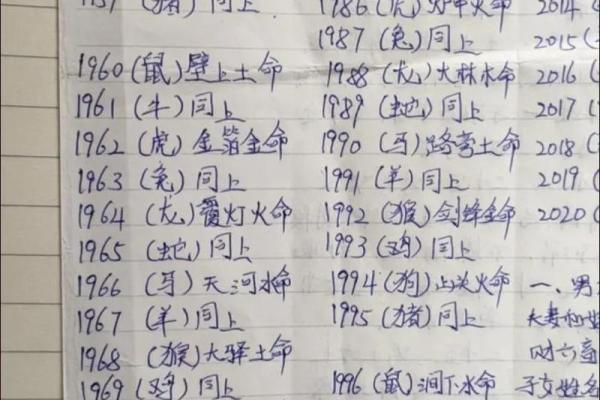 1960（鼠）壁上土命
1961（牛）同上
1962（虎）金箔金命
1963（兔）同上
1964（龙）覆灯火命
1965（蛇）同上
1966（马）天河水命
1967（羊）同上
1968（猴）大驿土命
1969（鸡）同上
1986（虎）炉中火命
1987（兔）同上
1988（龙）大林木命
1989（蛇）同上
1990（马）路旁土命
1991（羊）同上
1992（猴）剑锋金命
1993（鸡）同上
1994（狗）山头火命
1995（猪）同上
1996（鼠）涧下水命
2014（
2015（
2016（
2017（
2018（
2019（
2020（
一、男
子女姓名